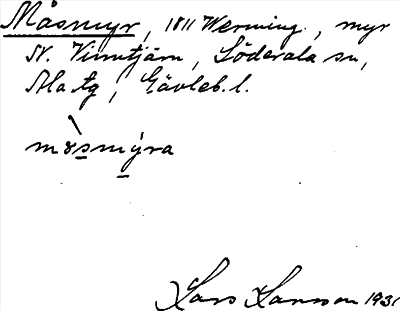 Måsmyr, 1811 Werming., myr
N. Vimtjärn, Söderala sn,
Ala tg, Gävleb. l.
mɤ̀smy̱ra
Lars Larsson 1931